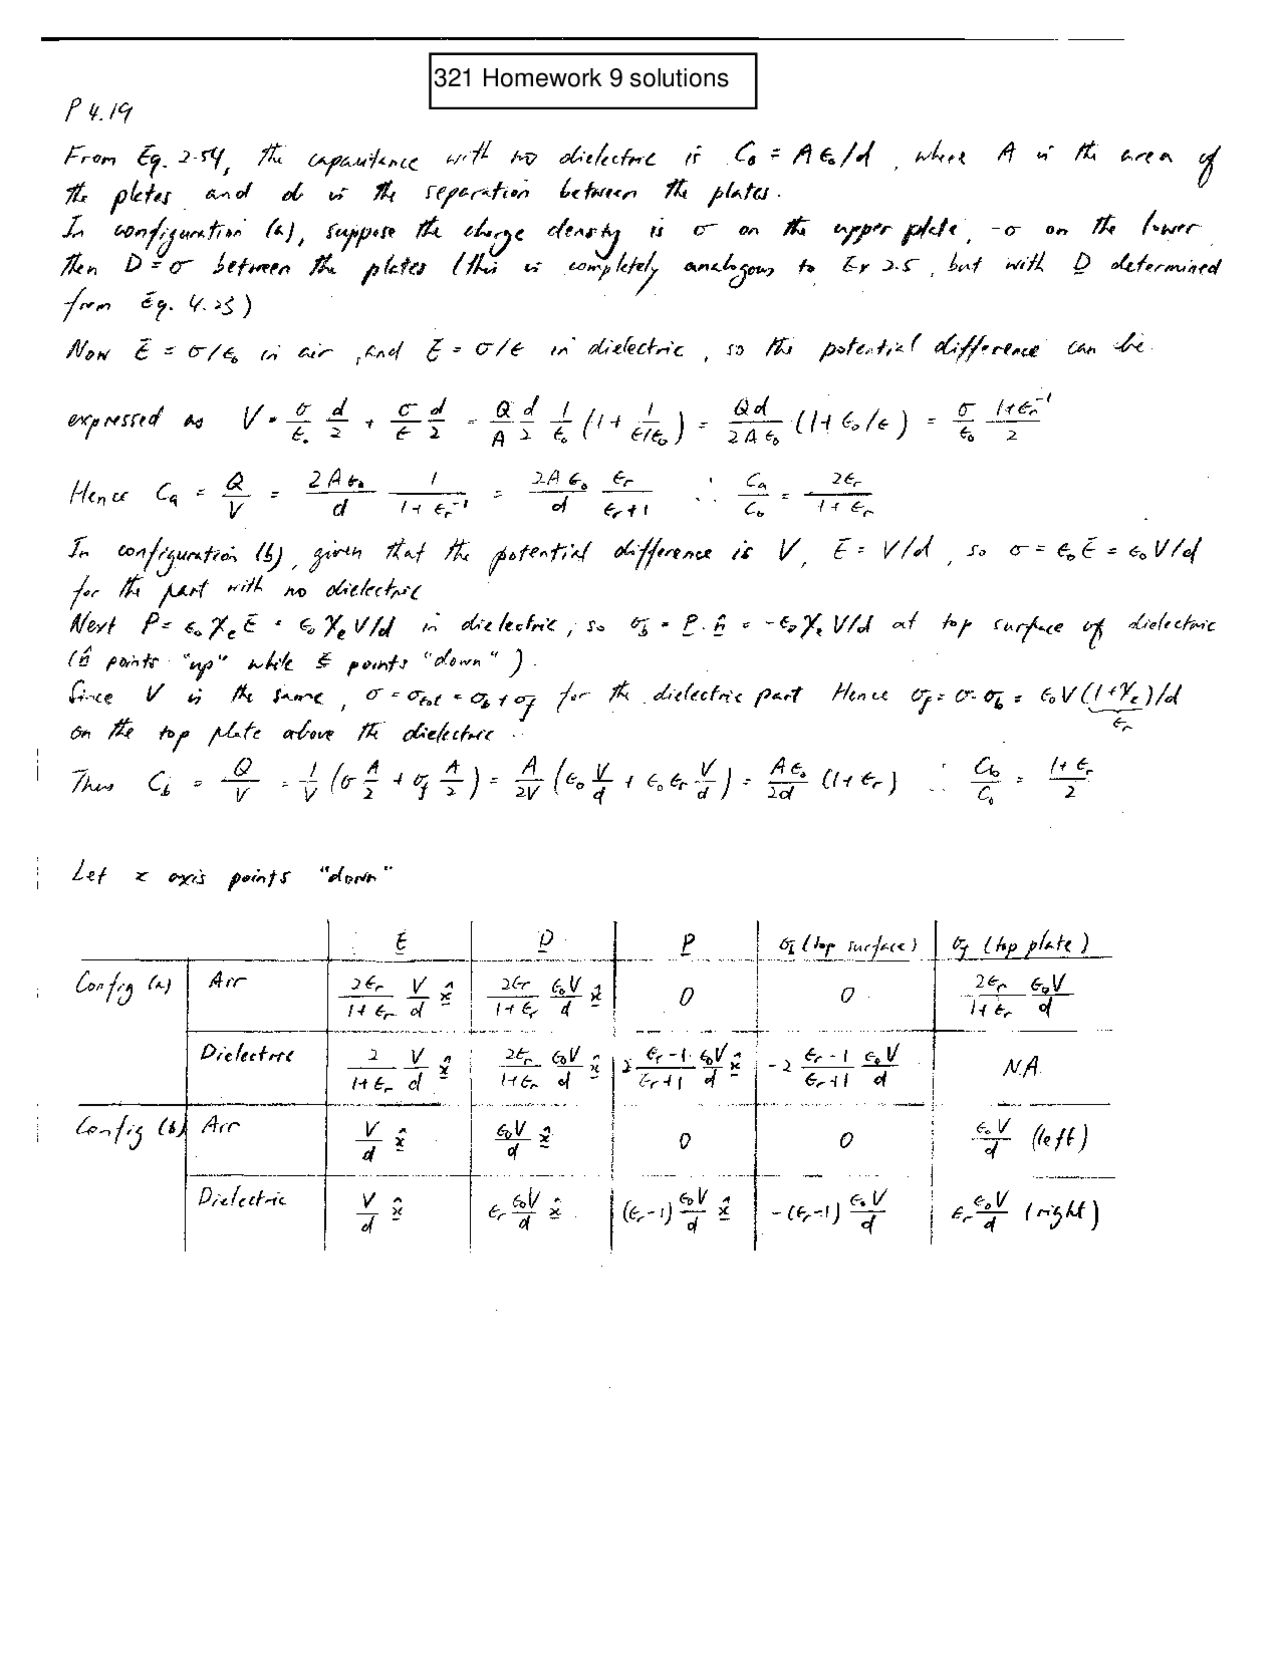 321 Homework 9 solutions
P 4.19
From Eq. 2.54, the capacitance with no dielectric is C₀ = A ε₀/d, where A is the area of
the plates and d is the separation between the plates.
In configuration (a), suppose the charge density is σ on the upper plate, -σ on the lower
then D = σ between the plates (this is completely analogous to Ex 2.5, but with D determined
from Eq. 4.23)
Now E = σ/ε₀ in air, and E = σ/ε in dielectric, so the potential difference can be
expressed as V = σ/ε₀ d/2 + σ/ε d/2 = Q/A d/2 1/ε₀ (1 + 1/(ε/ε₀)) = Qd/(2Aε₀) (1 + ε₀/ε) = σ/ε₀ (1+εr⁻¹)/2
Hence Ca = Q/V = 2Aε₀/d 1/(1+εr⁻¹) = 2Aε₀/d εr/(εr+1) ∴ Ca/C₀ = 2εr/(1+εr)
In configuration (b), given that the potential difference is V, E = V/d, so σ = ε₀E = ε₀V/d
for the part with no dielectric
Next P = ε₀χeE = ε₀χeV/d in dielectric, so σb = P.n̂ = -ε₀χeV/d at top surface of dielectric
(n̂ points "up" while E points "down").
Since V is the same, σ = σtot = σb + σf for the dielectric part Hence σf = σ-σb = ε₀V(1+χe)/d
εr
on the top plate above the dielectric.
Thus Cb = Q/V = 1/V (σ A/2 + σf A/2) = A/2V (ε₀ V/d + ε₀εr V/d) = Aε₀/2d (1+εr) ∴ Cb/C₀ = (1+εr)/2
Let x axis points "down"
E D P σb (top surface) σf (top plate)
Config (a) Air 2εr/(1+εr) V/d x̂ 2εr/(1+εr) ε₀V/d x̂ 0 0 2εr/(1+εr) ε₀V/d
Dielectric 2/(1+εr) V/d x̂ 2εr/(1+εr) ε₀V/d x̂ 2 (εr-1)/(εr+1) ε₀V/d x̂ -2 (εr-1)/(εr+1) ε₀V/d N.A.
Config (b) Air V/d x̂ ε₀V/d x̂ 0 0 ε₀V/d (left)
Dielectric V/d x̂ εr ε₀V/d x̂ (εr-1) ε₀V/d x̂ -(εr-1) ε₀V/d εr ε₀V/d (right)